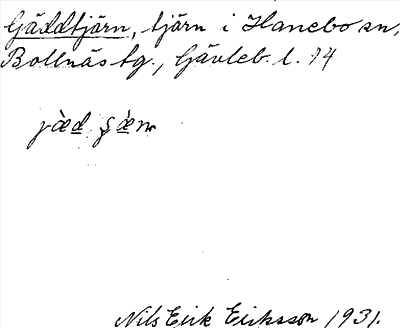 Gäddtjärn, tjärn i Hanebo sn,
Bollnäs tg., Gävleb. l. 14
Nils Erik Eriksson 1931.